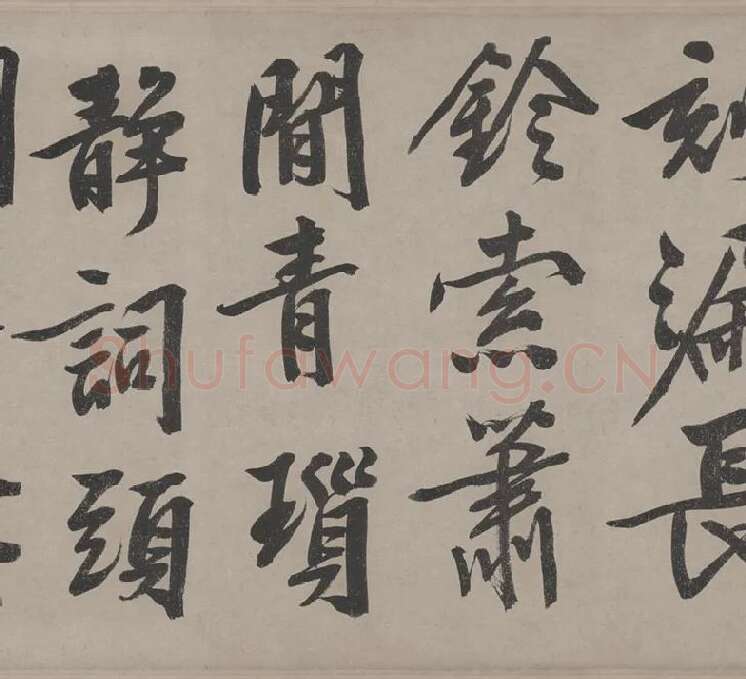 刻漏長
鈴索蕭
間青瑣
靜詞頭
Shufawang.CN